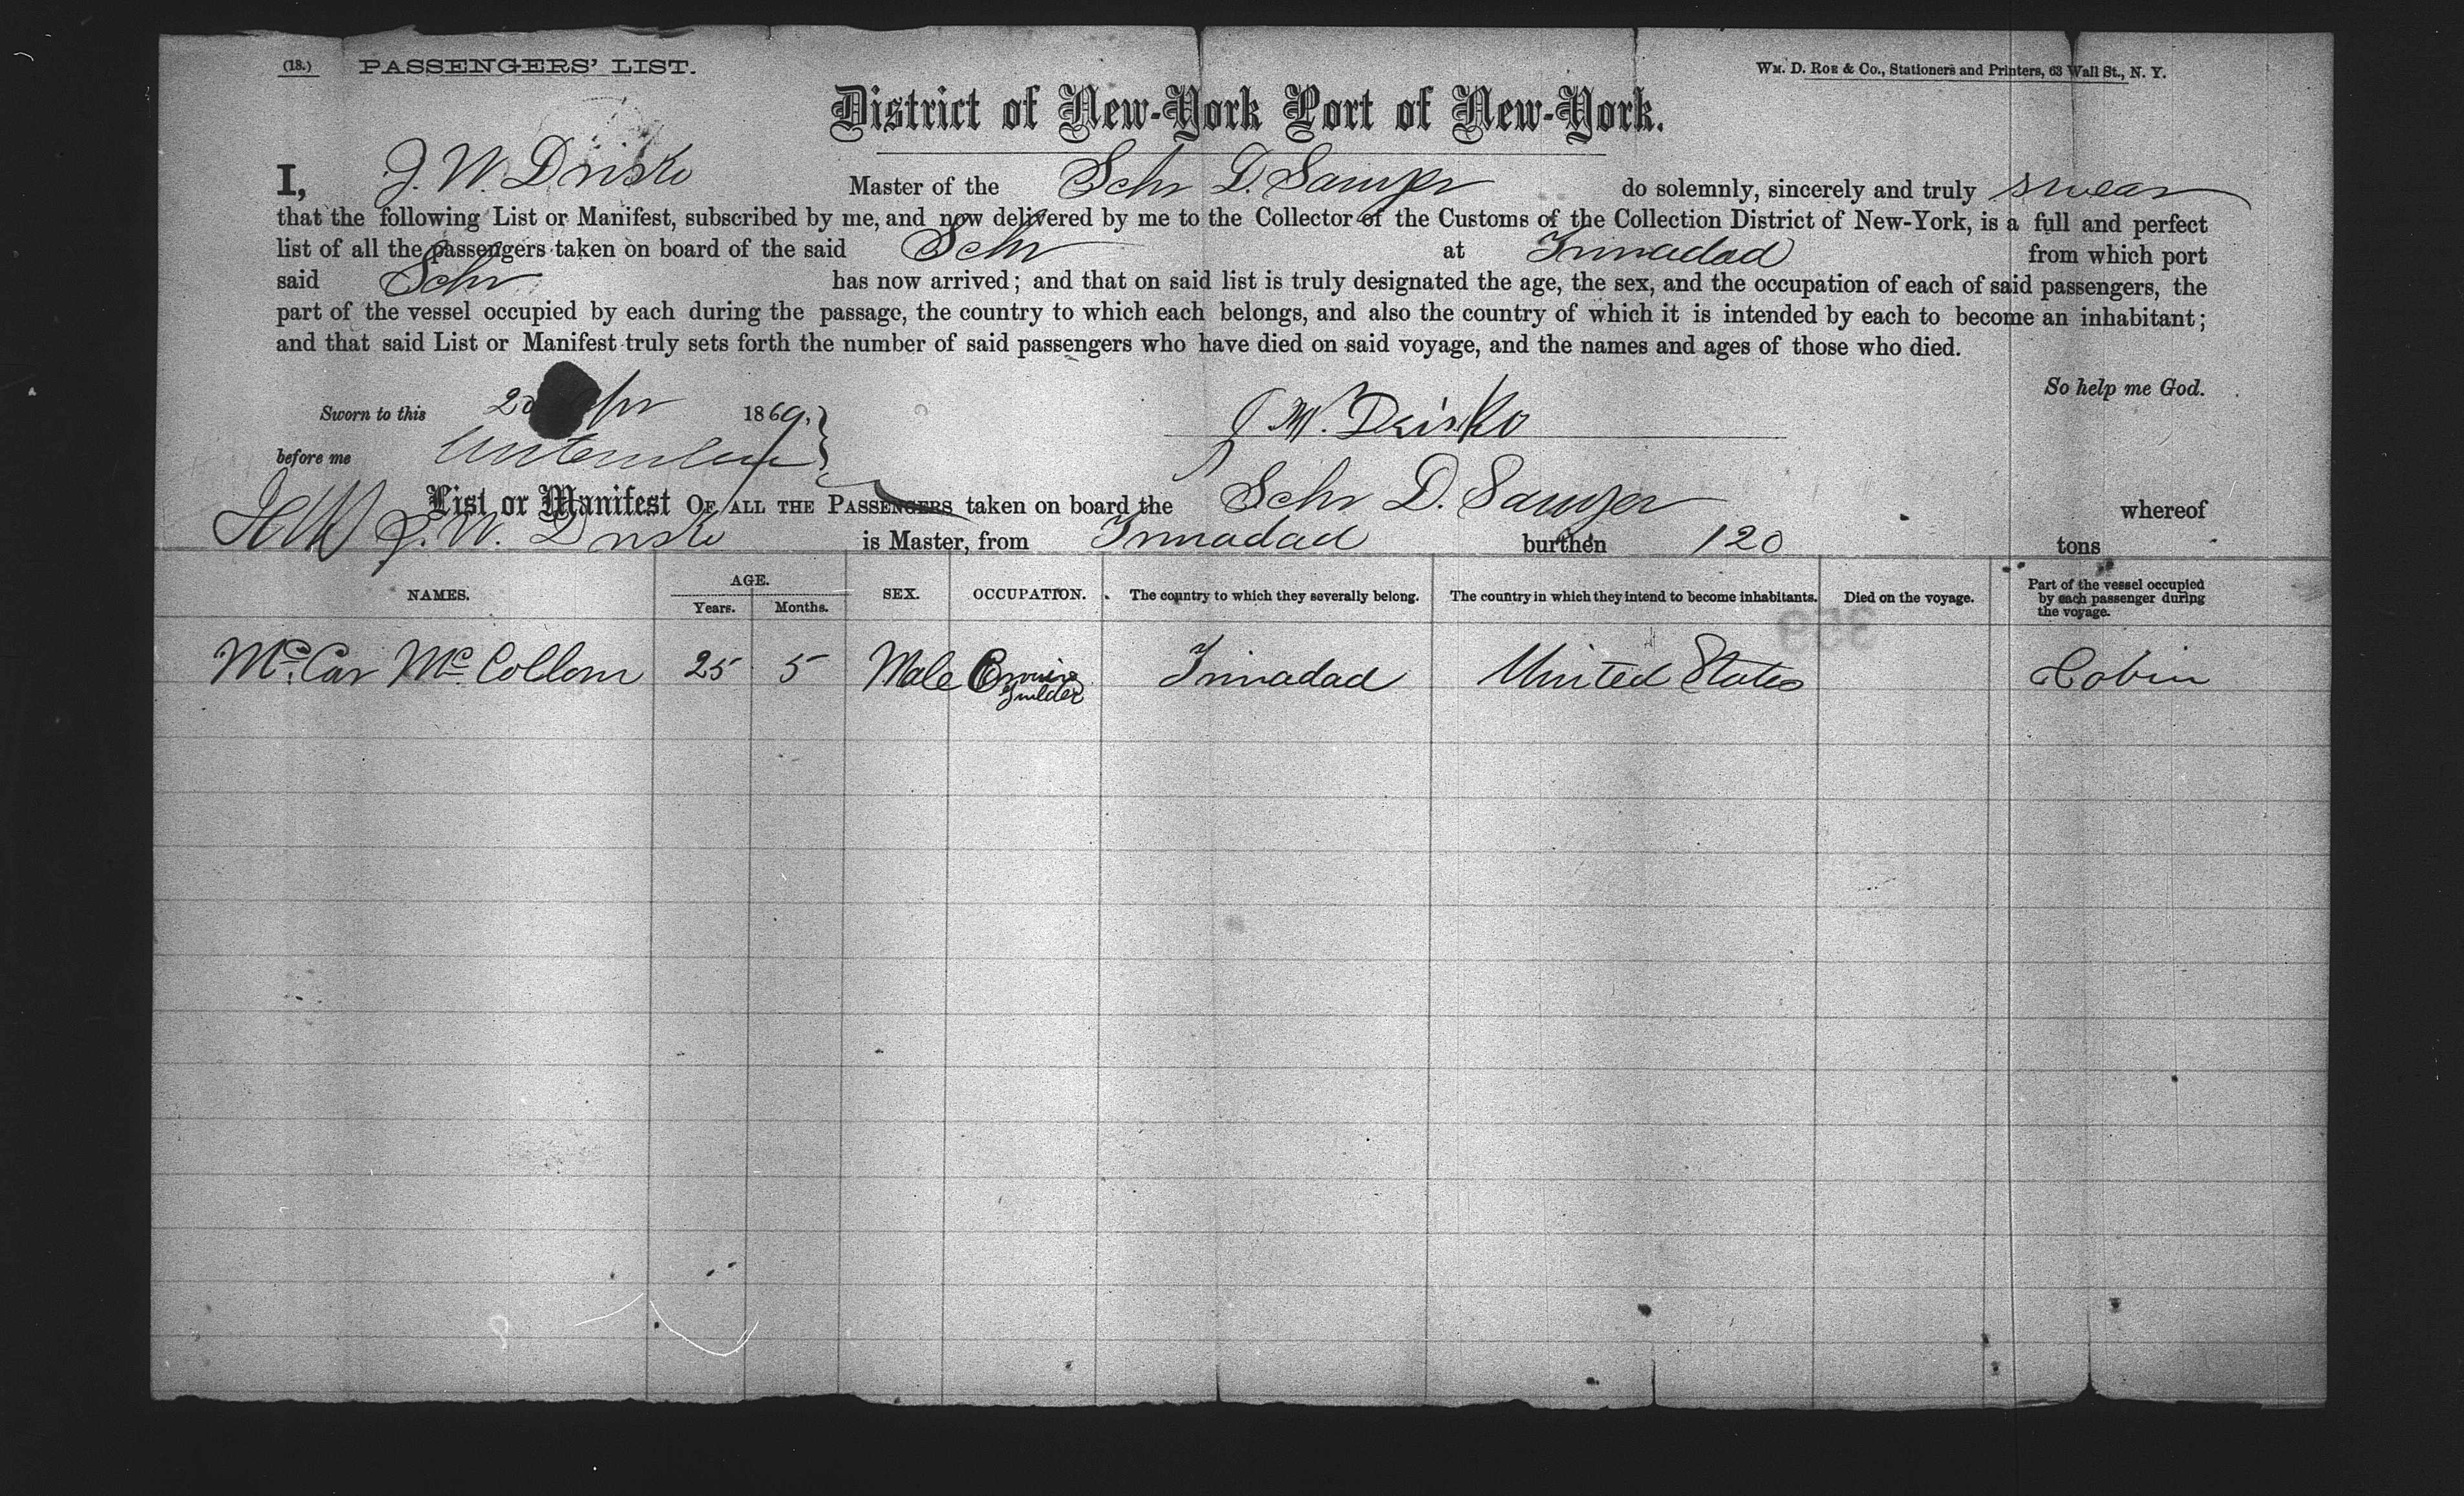 (18.) PASSENGERS' LIST. Wm. D. Roe & Co., Stationers and Printers, 63 Wall St., N. Y.
District of New-York Port of New-York.
I, J. W. Drisko Master of the Schr D. Sawyer do solemnly, sincerely and truly swear
that the following List or Manifest, subscribed by me, and now delivered by me to the Collector of the Customs of the Collection District of New-York, is a full and perfect
list of all the passengers taken on board of the said Schr at Trinadad from which port
said Schr has now arrived; and that on said list is truly designated the age, the sex, and the occupation of each of said passengers, the
part of the vessel occupied by each during the passage, the country to which each belongs, and also the country of which it is intended by each to become an inhabitant;
and that said List or Manifest truly sets forth the number of said passengers who have died on said voyage, and the names and ages of those who died.
So help me God.
Sworn to this 20 Apr 1869.
J W. Drisko
before me
List or Manifest OF ALL THE PASSENGERS taken on board the Schr D. Sawyer whereof
J. W. Drisko is Master, from Trinadad burthen 120 tons
NAMES. AGE. Years. Months. SEX. OCCUPATION. The country to which they severally belong. The country in which they intend to become inhabitants. Died on the voyage. Part of the vessel occupied by each passenger during the voyage.
Mc. Car Mc Collom 25 5 Male Trinadad United States Cabin